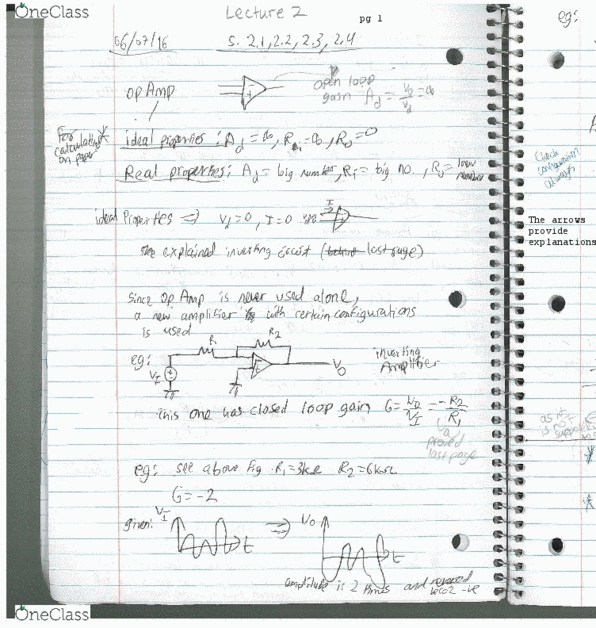 OneClass
Lecture 2
pg 1
06/07/16
S. 2.1, 2.2, 2.3, 2.4
eg:
op Amp
open loop
gain A_d = v_o/v_d = ∞
For
calculations
on paper
ideal properties: A_d = ∞, R_i = ∞, R_o = 0
Real properties: A_d = big number, R_i = big no., R_o = low
number
Check
configuration
always
ideal Properties ⇒ v_d = 0, I = 0
The arrows
provide
explanations
explained inverting circuit (behind last page)
since op Amp is never used alone,
a new amplifier with certain configurations
is used
eg:
R1
R2
V_I
V_O
inverting
Amplifier
This one has closed loop gain G = V_O/V_I = -R2/R1
proved
last page
as it
is not
eg: see above fig. R1 = 3kΩ R2 = 6kΩ
G = -2
given:
V_I
t
⇒
V_O
t
amplitude is 2 times and reversed
-ve
OneClass